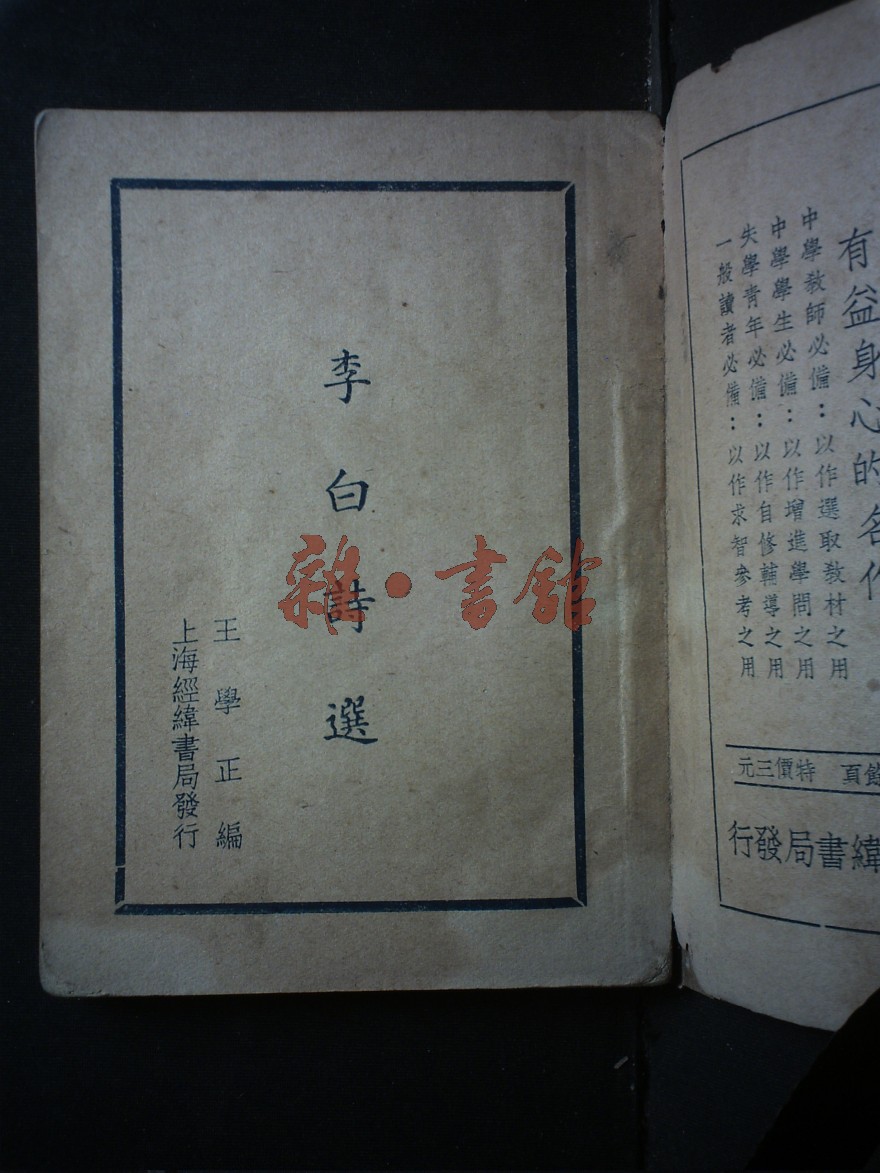 李白詩選
王學正編
上海經緯書局發行
雜·書館
有益身心的名作
中學教師必備：以作選取教材之用
中學學生必備：以作增進學問之用
失學青年必備：以作自修輔導之用
一般讀者必備：以作求智參考之用
元三價特 頁餘
行發局書緯